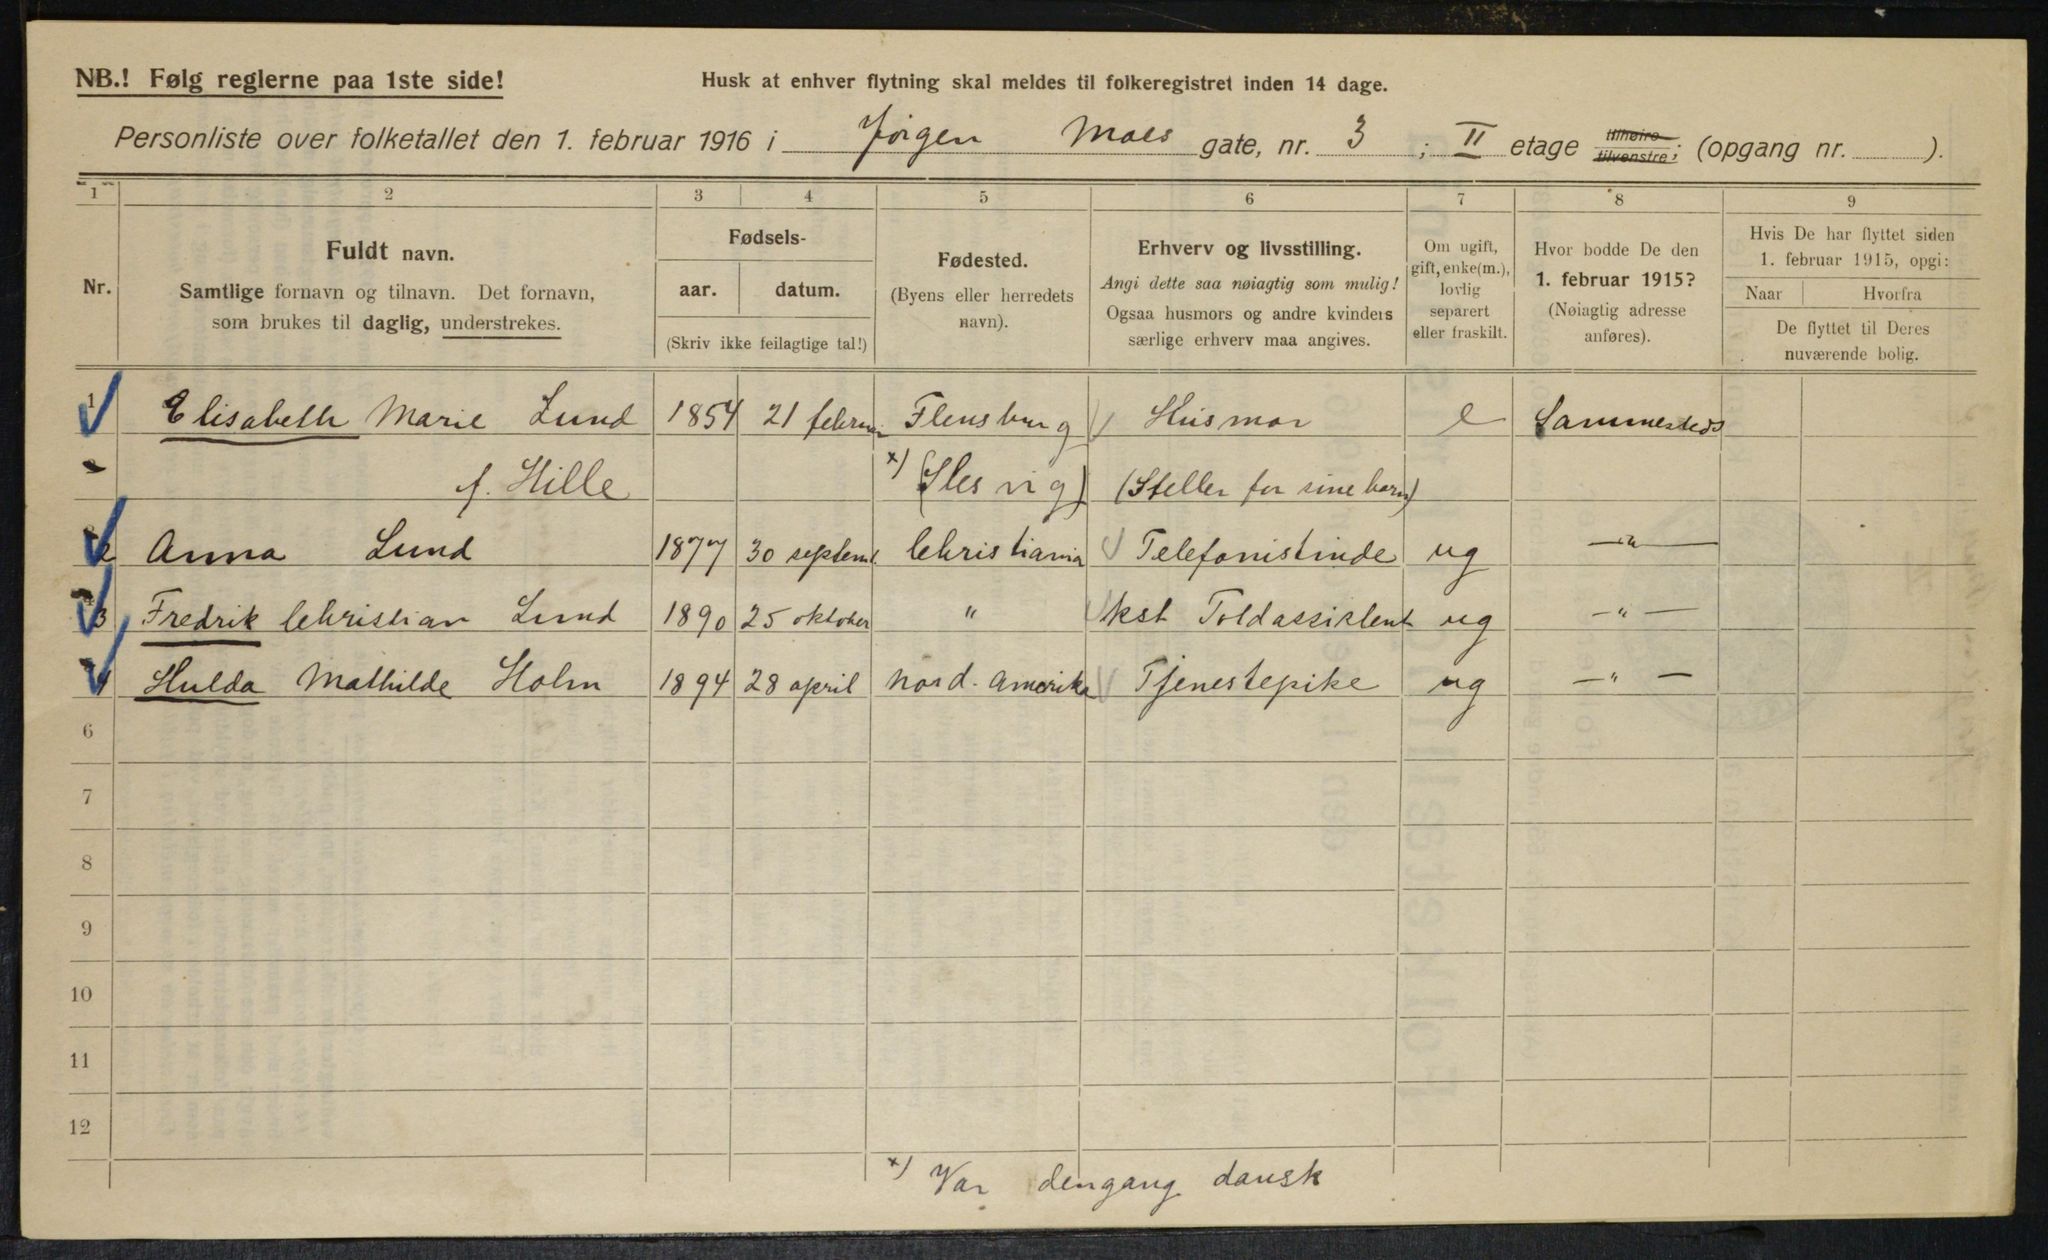 NB.! Følg reglerne paa 1ste side!
Husk at enhver flytning skal meldes til folkeregistret inden 14 dage.
Personliste over folketallet den 1. februar 1916 i Jørgen Moes gate, nr. 3 ; II etage tilhøire tilvenstre; (opgang nr. ).
1 2 3 4 5 6 7 8 9
Nr.
Fuldt navn.
Samtlige fornavn og tilnavn. Det fornavn,
som brukes til daglig, understrekes.
Fødsels-
aar. datum.
(Skriv ikke feilagtige tal!)
Fødested.
(Byens eller herredets
navn).
Erhverv og livsstilling.
Angi dette saa nøiagtig som mulig!
Ogsaa husmors og andre kvinders
særlige erhverv maa angives.
Om ugift,
gift, enke(m.),
lovlig
separert
eller fraskilt.
Hvor bodde De den
1. februar 1915?
(Nøiagtig adresse
anføres).
Hvis De har flyttet siden
1. februar 1915, opgi:
Naar Hvorfra
De flyttet til Deres
nuværende bolig.
1 Elisabeth Marie Lund 1854 21 februar Flensburg Husmor e Sammesteds
f. Hille x) (Slesvig) (Steller for sine barn)
2 Anna Lund 1877 30 septemb. Christiania Telefonistinde ug —"—
3 Fredrik Christian Lund 1890 25 oktober " kst Toldassistent ug —"—
4 Hulda Mathilde Holm 1894 28 april Nord-Amerika Tjenestepike ug —"—
6
7
8
9
10
11
12
x) Var dengang dansk